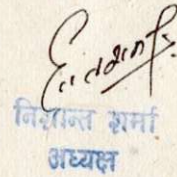 निशान्त शर्मा
अध्यक्ष